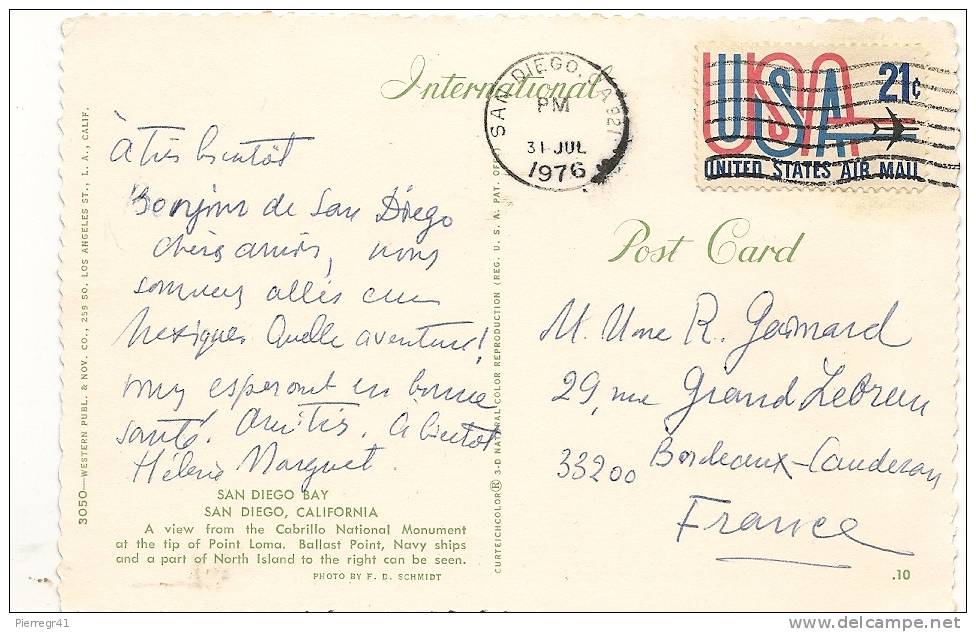 International
SAN DIEGO, CA 921
PM
31 JUL
1976
USA
21¢
UNITED STATES AIR MAIL
Post Card
à très bientôt
Bonjour de San Diego
chers amis, nous
sommes allés au
Mexique. Quelle aventure!
vous esperont en bonne
santé. Amitiés. A bientôt
Marguet.
M. Mme R.
29, rue Grand Lebrun
33200 Bordeaux-Cauderan
France
SAN DIEGO BAY
SAN DIEGO, CALIFORNIA
A view from the Cabrillo National Monument
at the tip of Point Loma. Ballast Point, Navy ships
and a part of North Island to the right can be seen.
PHOTO BY F. D. SCHMIDT
3050—WESTERN PUBL. & NOV. CO., 259 SO. LOS ANGELES ST., L. A., CALIF.
CURTEICHCOLOR® 3-D NATURAL COLOR REPRODUCTION (REG. U. S. A. PAT. OF
.10
Pierregr41
www.delcampe.net